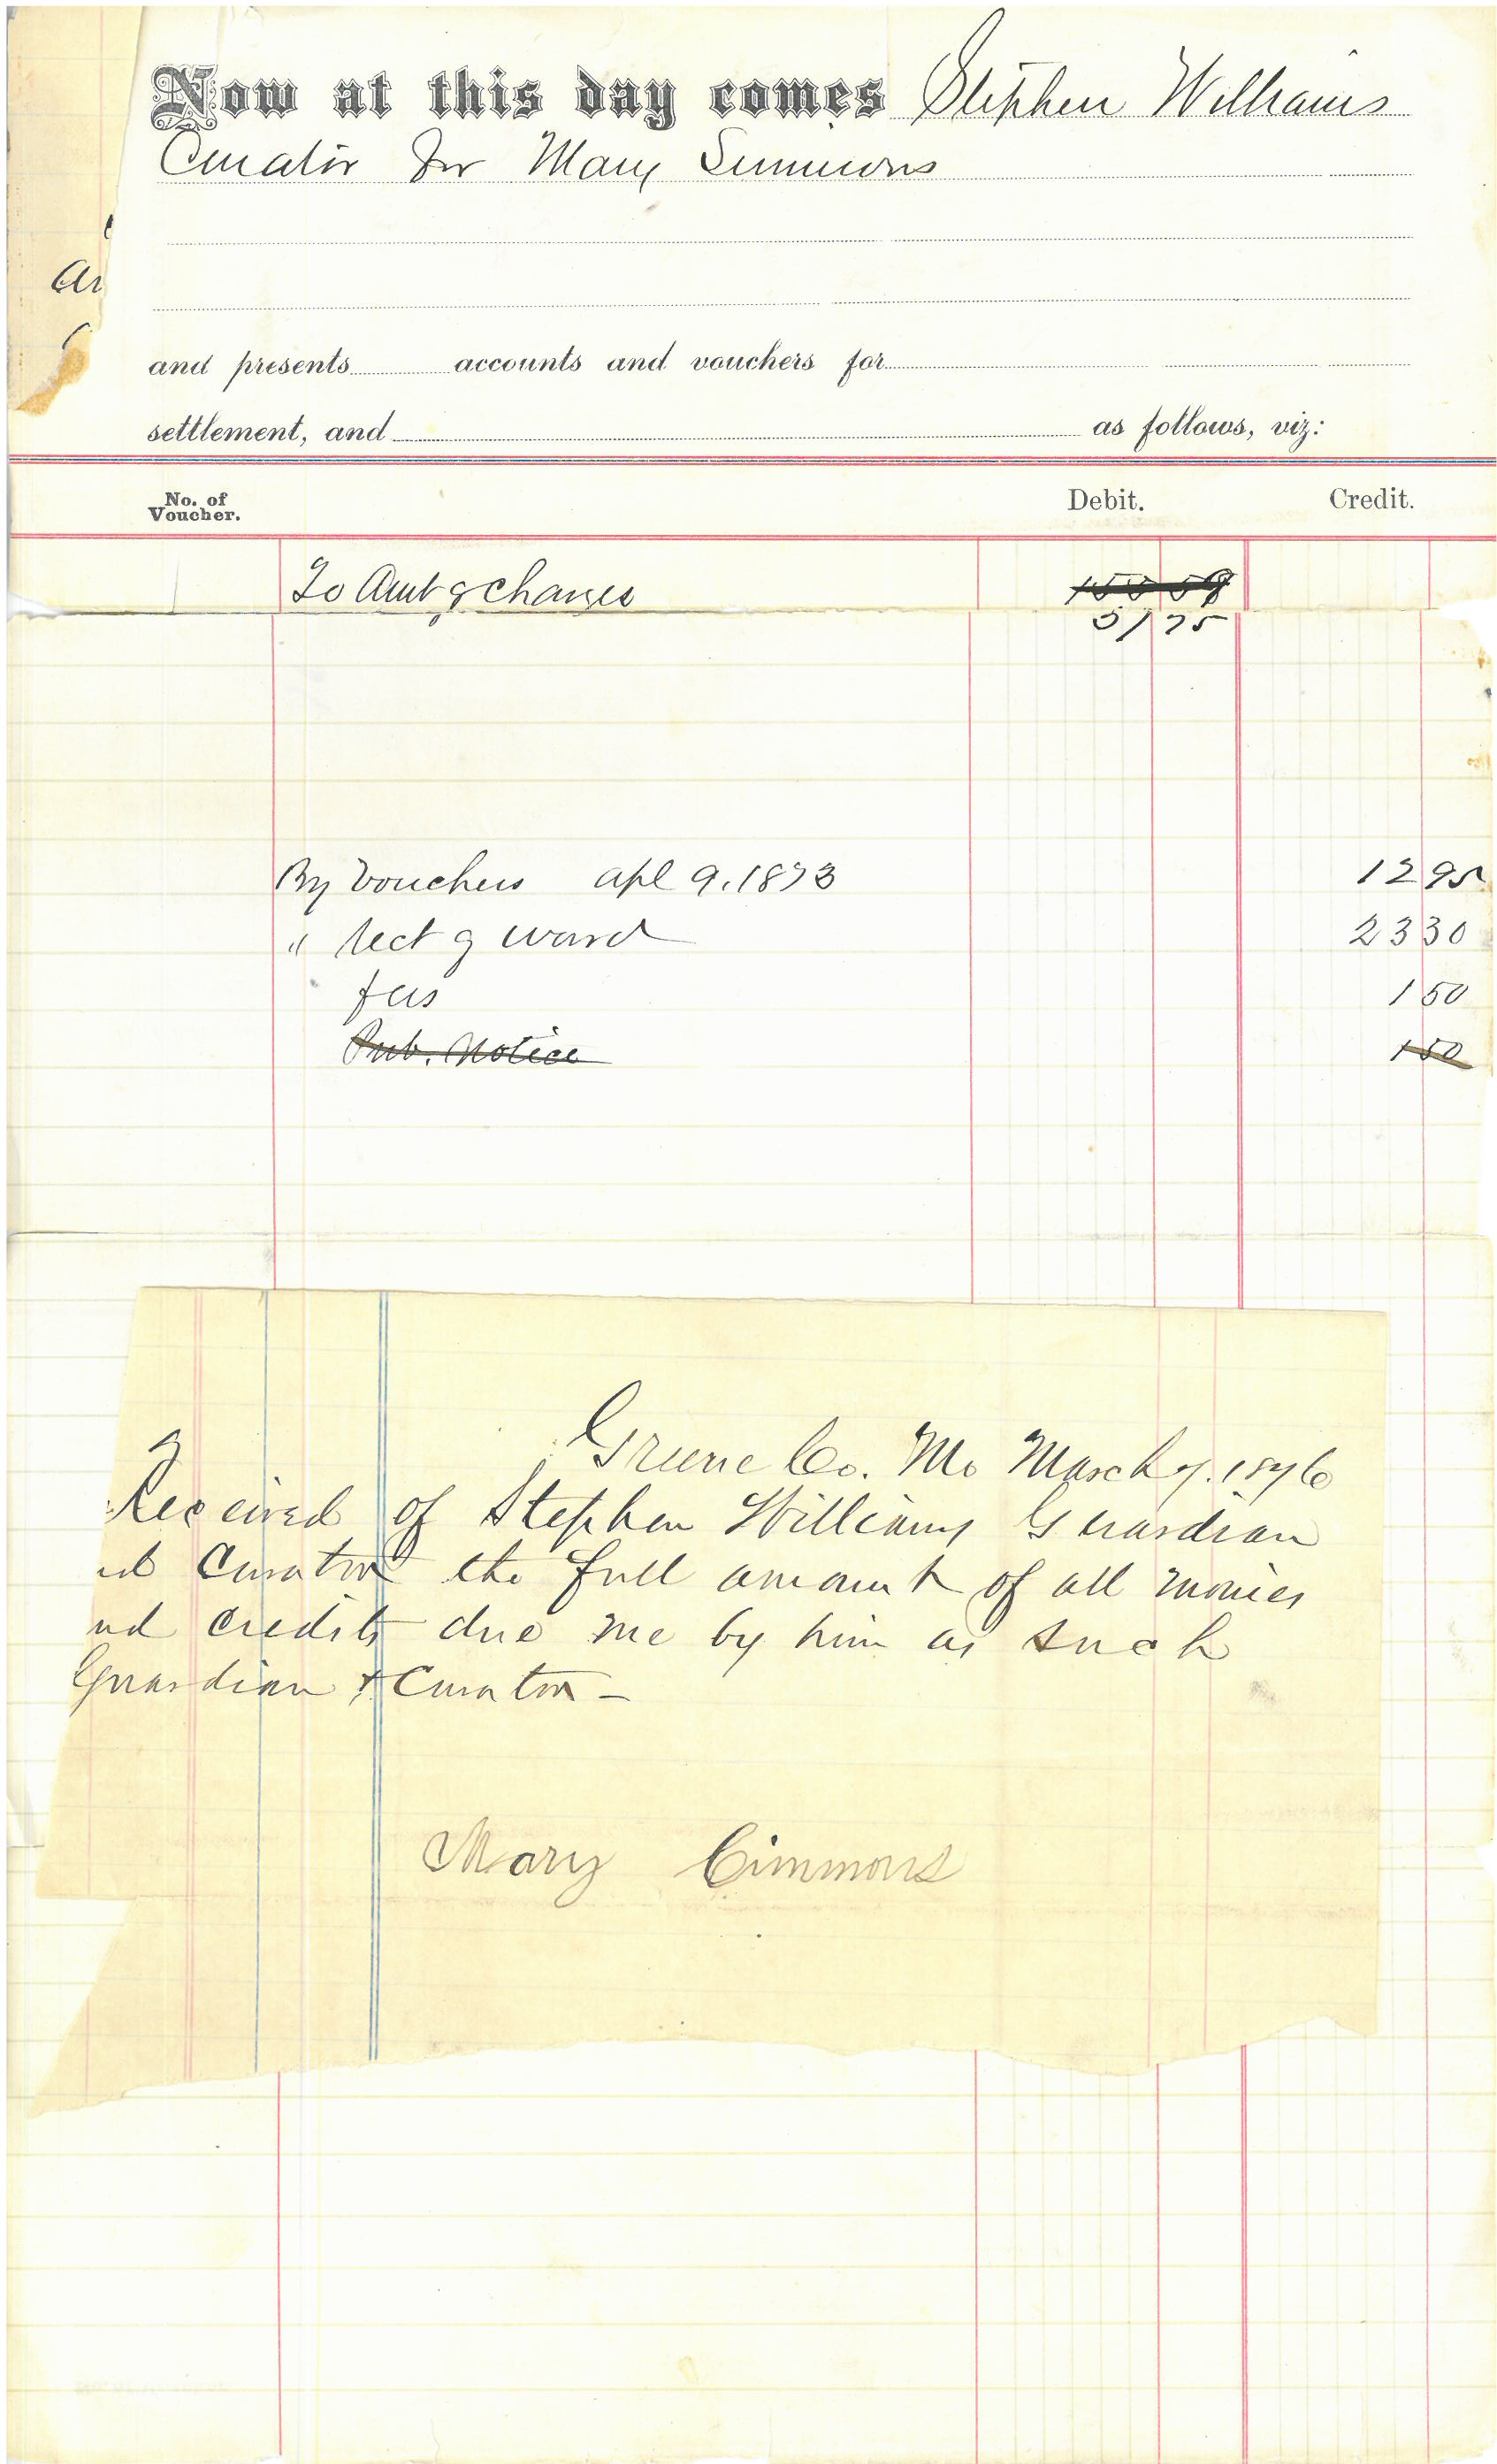 Now at this day comes Stephen Williams
Curator for Mary Simmons
and presents accounts and vouchers for
settlement, and as follows, viz:
No. of Voucher. Debit. Credit.
To Amt of charges
51 75
By Vouchers Apl 9, 1873 12 95
" Rect of ward 23 30
fees 1 50
Pub. Notice 1 50
Greene Co. Mo March 7. 1876
Received of Stephen Williams Guardian
nd Curator the full amount of all monies
nd credits due me by him as such
Guardian & Curator -
Mary Cimmons